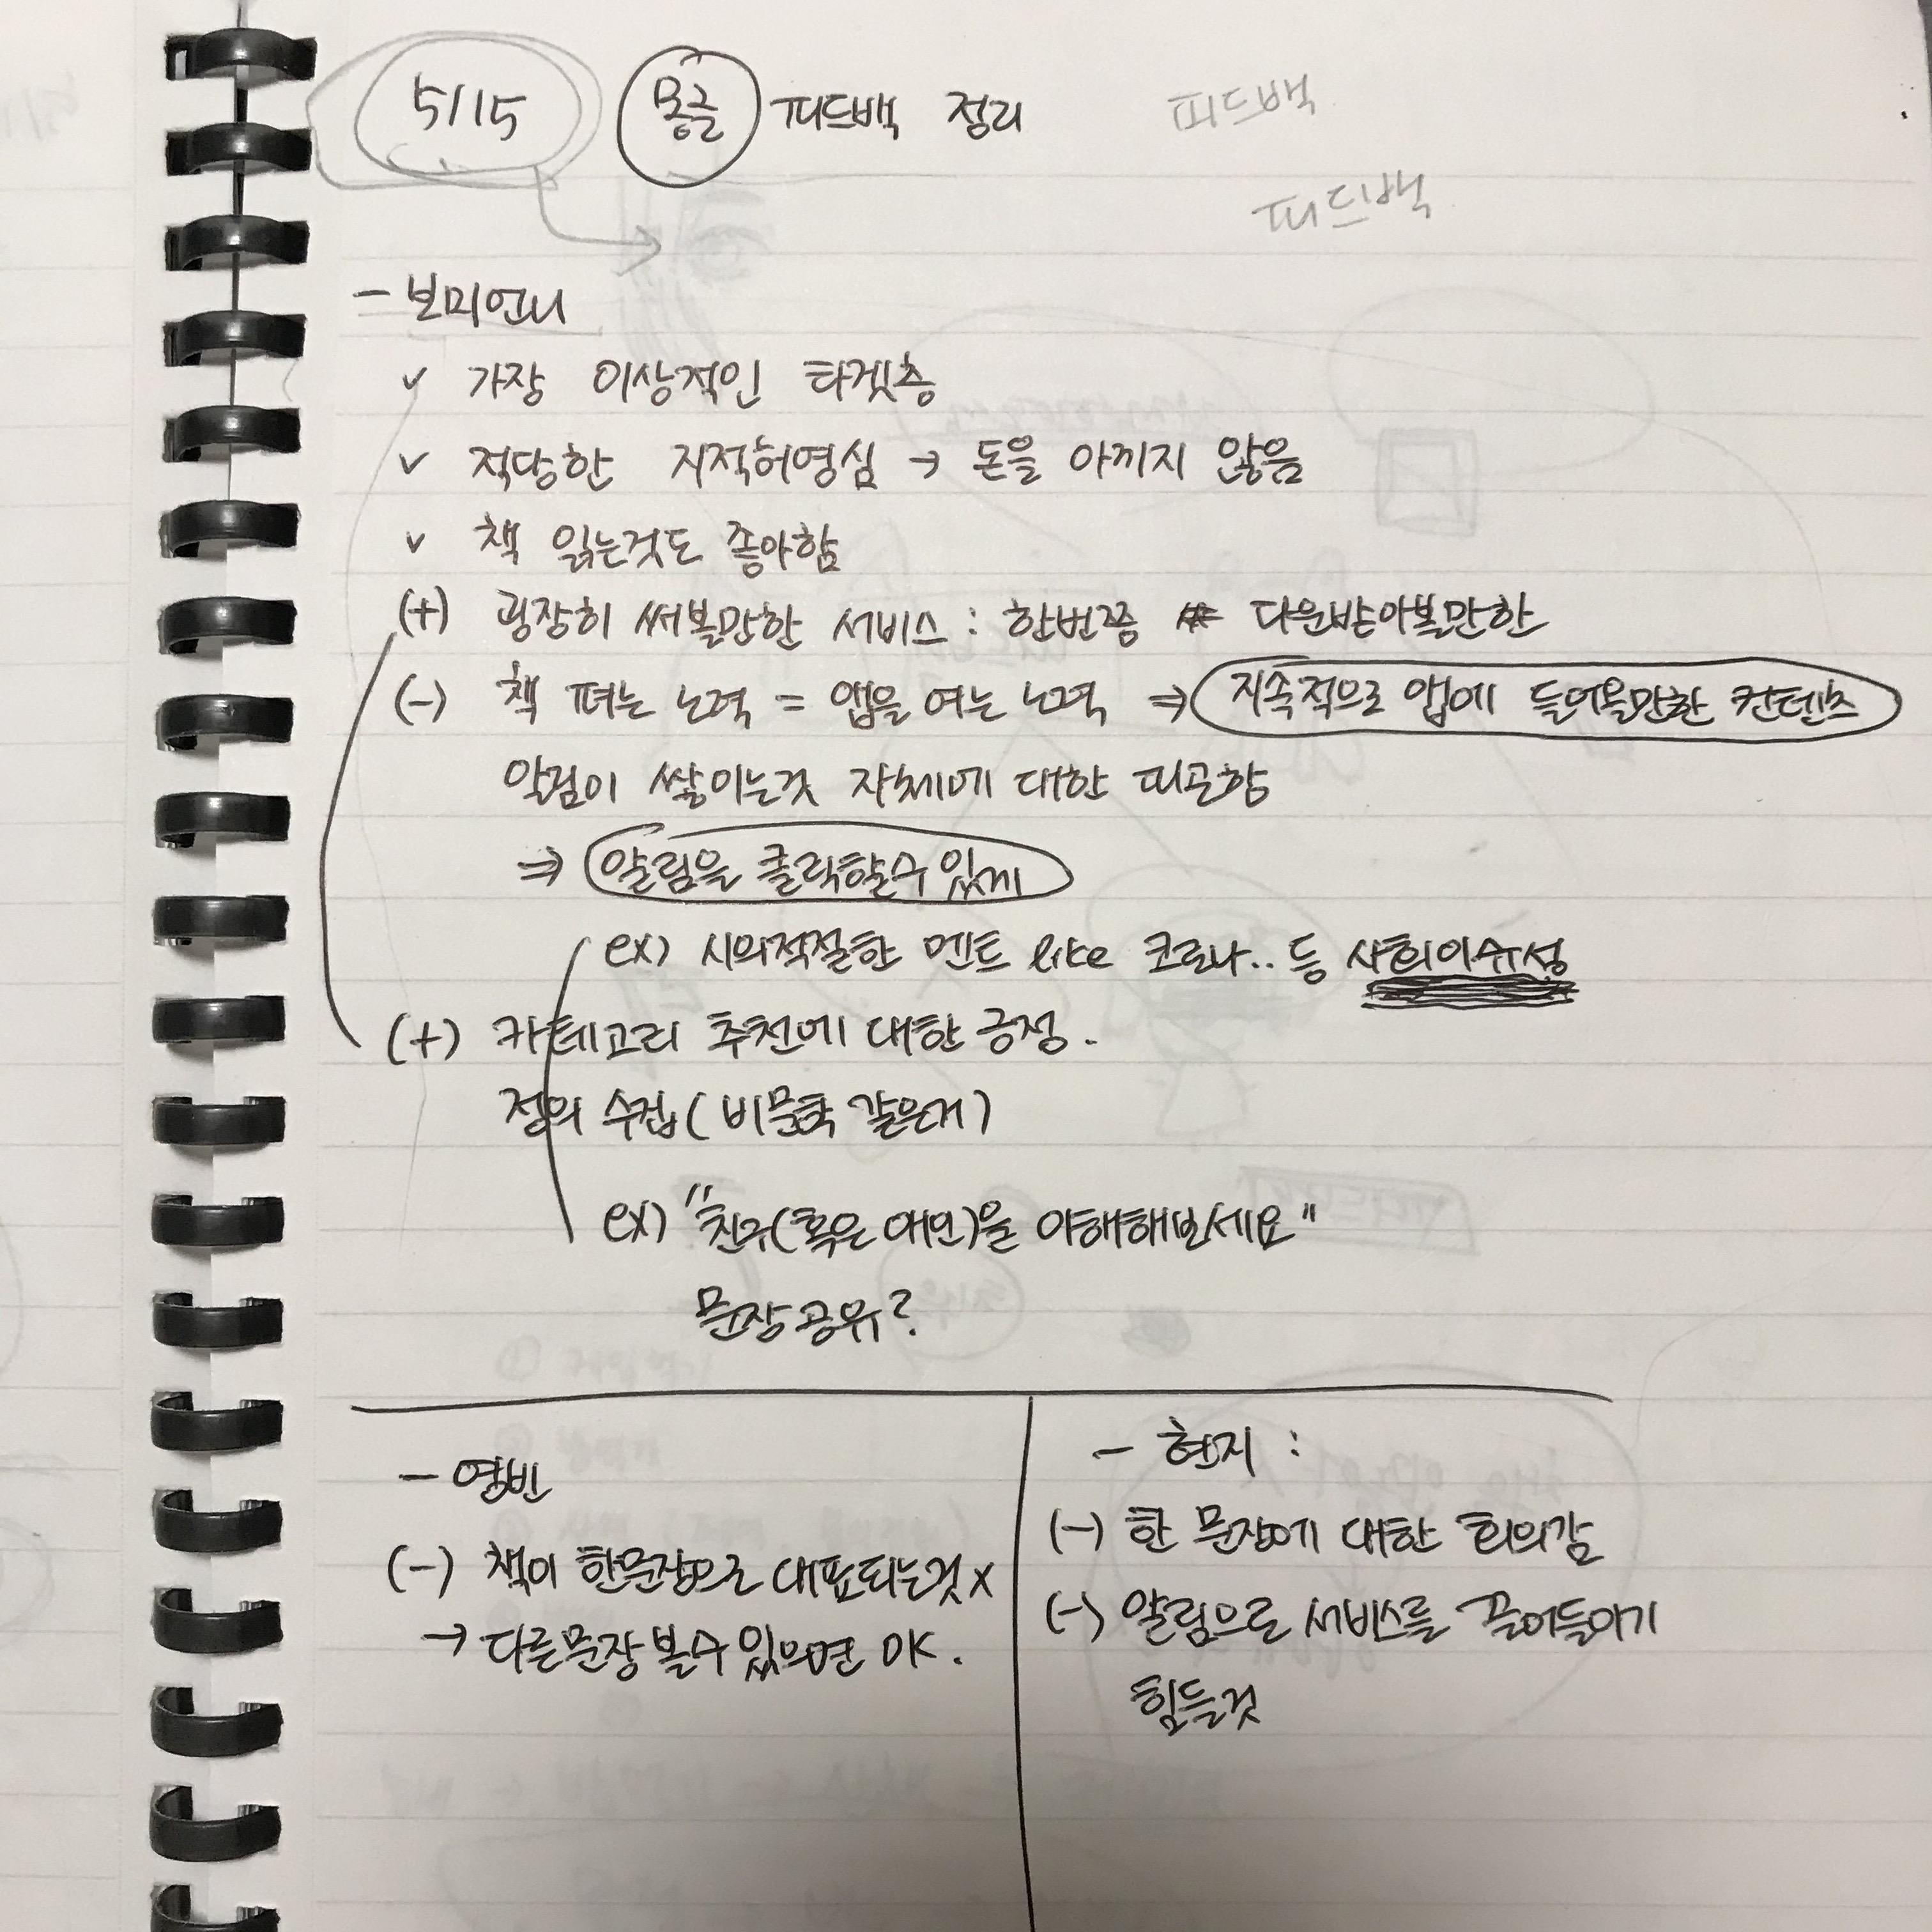 5/15 몽글 피드백 정리 피드백
피드백
- 보미언니
✓ 가장 이상적인 타겟층
✓ 적당한 지적허영심 → 돈을 아끼지 않음
✓ 책 읽는것도 좋아함
(+) 굉장히 써볼만한 서비스 : 한번쯤 다운받아볼만한
(-) 책 펴는 노력 = 앱을 여는 노력 ⇒ 지속적으로 앱에 들어올만한 컨텐츠
알림이 쌓이는것 자체에 대한 피곤함
⇒ 알림을 클릭할수 있게
ex) 시의적절한 멘트 like 코로나.. 등 사회이슈성
(+) 카테고리 추천에 대한 긍정.
정의 수집 (비문학 같은거)
ex) "친구(혹은 애인)을 야해해보세요"
문장공유?
- 영빈
(-) 책이 한문장으로 대표되는것 x
→ 다른문장 볼수 있으면 OK.
- 현지 :
(-) 한 문장에 대한 회의감
(-) 알림으로 서비스를 끌어들이기
힘든것